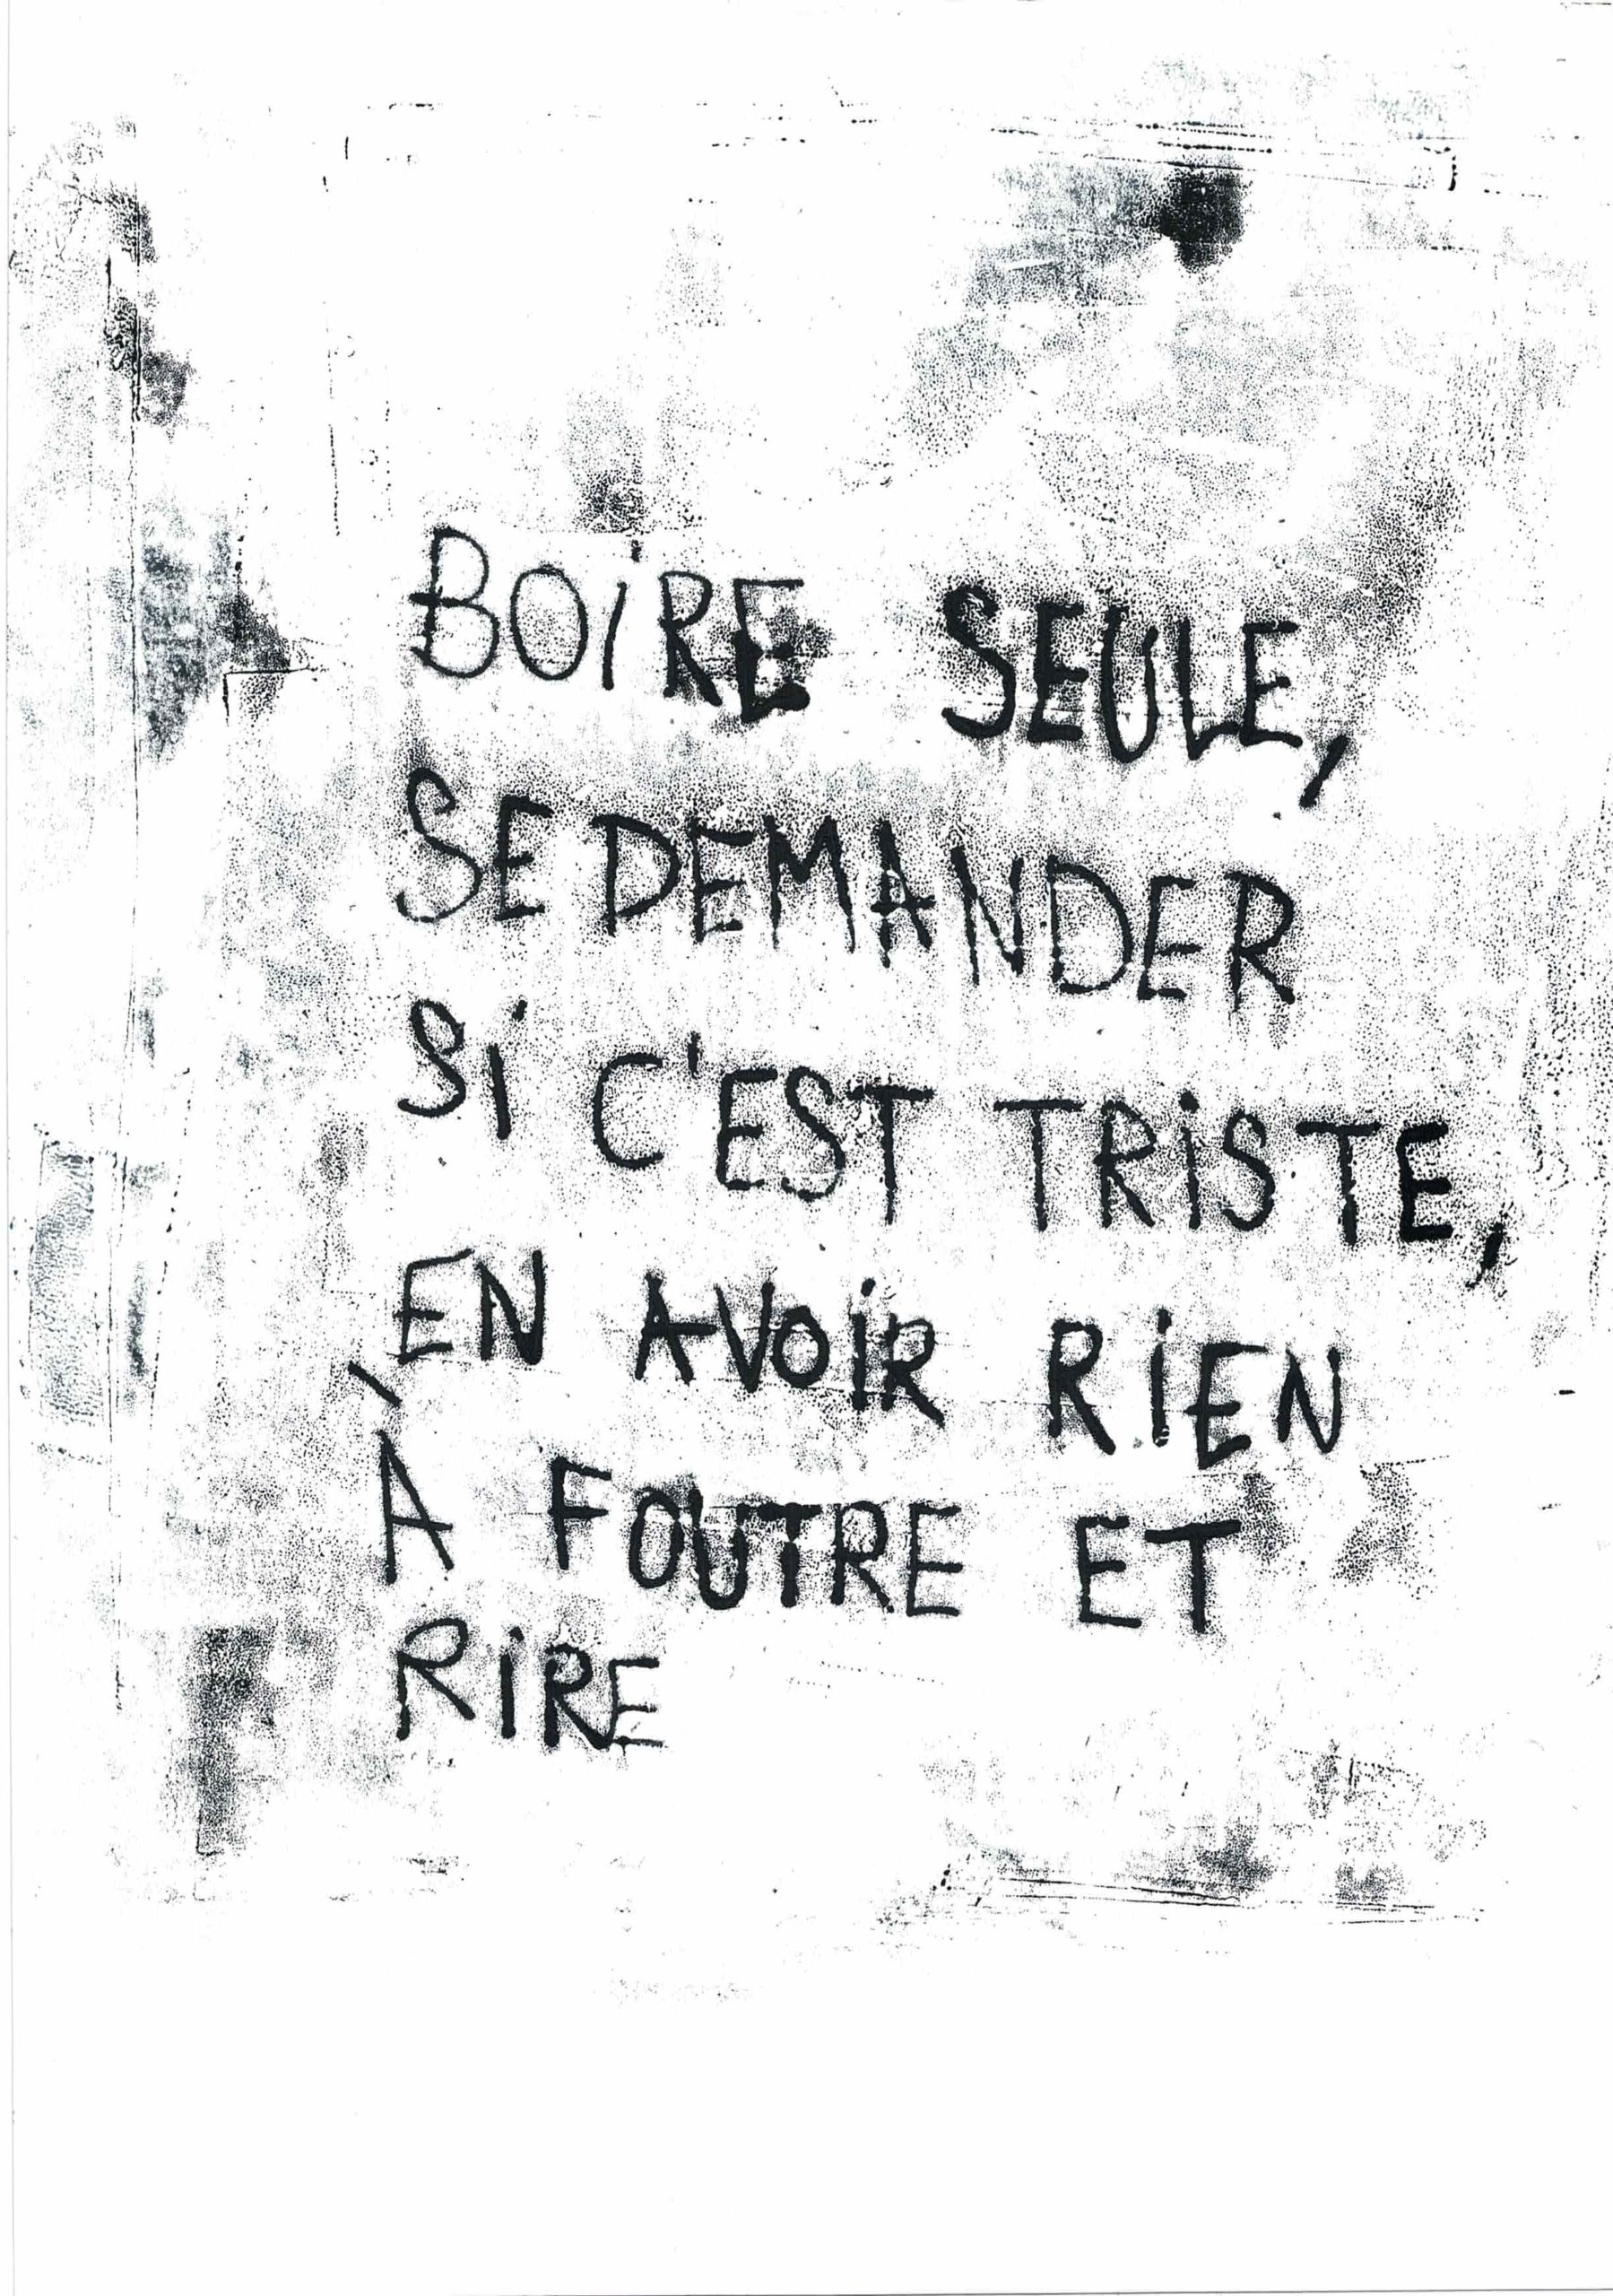 BOiRE SEULE,
SE DEMANDER
Si C'EST TRiSTE,
EN AVOiR RiEN
À FOUTRE ET
RiRE